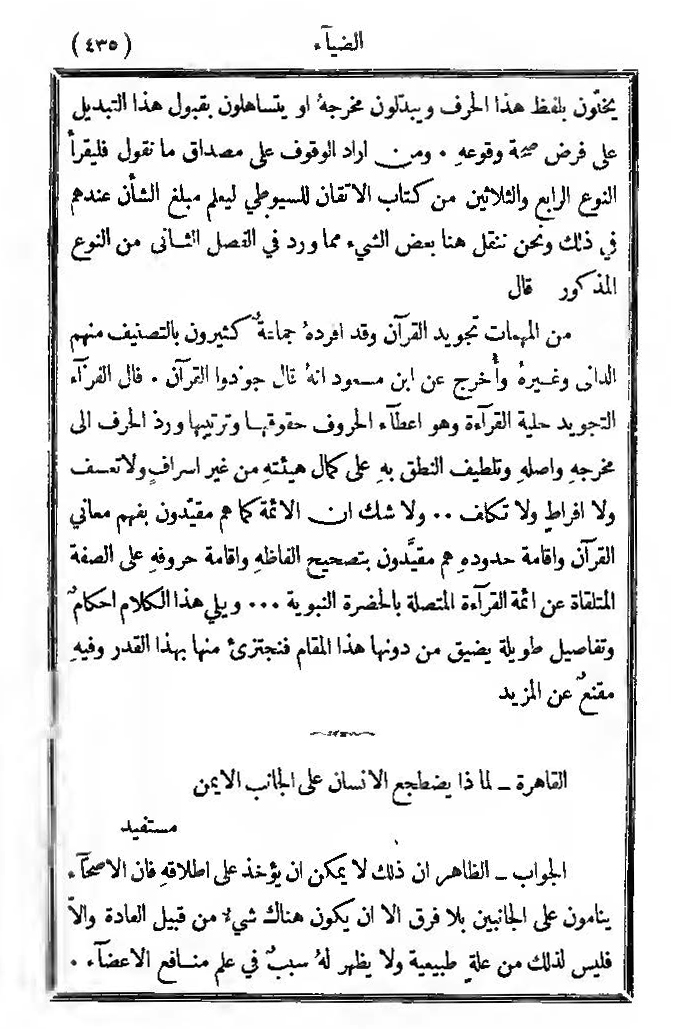 الضيآء
(٤٣٥)
يخلّون بلفظ هذا الحرف ويبدّلون مخرجهُ او يتساهلون بقبول هذا التبديل
على فرض صحة وقوعهِ ٠ ومن اراد الوقوف على مصداق ما نقول فليقرأ
النوع الرابع والثلاثين من كتاب الاتقان للسيوطي ليعلم مبلغ الشأن عندهم
في ذلك ونحن ننقل هنا بعض الشيء مما ورد في الفصل الثاني من النوع
المذكور قال
من المهمات تجويد القرآن وقد افردهُ جماعةٌ كثيرون بالتصنيف منهم
الداني وغيرهُ وأُخرج عن ابن مسعود انهُ قال جوّدوا القرآن ٠ قال القرآء
التجويد حلية القرآءة وهو اعطآء الحروف حقوقها وترتيبها وردّ الحرف الى
مخرجهِ واصلهِ وتلطيف النطق بهِ على كمال هيئتهِ من غير اسرافٍ ولا تعسف
ولا افراطٍ ولا تكلف ٠٠ ولا شك ان الائمة كما هم مقيّدون بفهم معاني
القرآن واقامة حدودهِ هم مقيَّدون بتصحيح الفاظهِ واقامة حروفهِ على الصفة
المتلقاة عن ائمة القرآءة المتصلة بالحضرة النبوية ٠٠٠ ويلي هذا الكلام احكامٌ
وتفاصيل طويلة يضيق من دونها هذا المقام فنجتزئ منها بهذا القدر وفيهِ
مقنعٌ عن المزيد
القاهرة ـ لماذا يضطجع الانسان على الجانب الايمن
مستفيد
الجواب ـ الظاهر ان ذلك لا يمكن ان يؤخذ على اطلاقهِ فان الاصحآء
ينامون على الجانبين بلا فرق الا ان يكون هناك شيءٌ من قبيل العادة والاّ
فليس لذلك من علةٍ طبيعية ولا يظهر لهُ سببٌ في علم منافع الاعضآء ٠